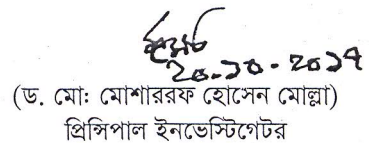 ২০.১০.২০১৭
(ড. মোঃ মোশাররফ হোসেন মোল্লা)
প্রিন্সিপাল ইনভেস্টিগেটর